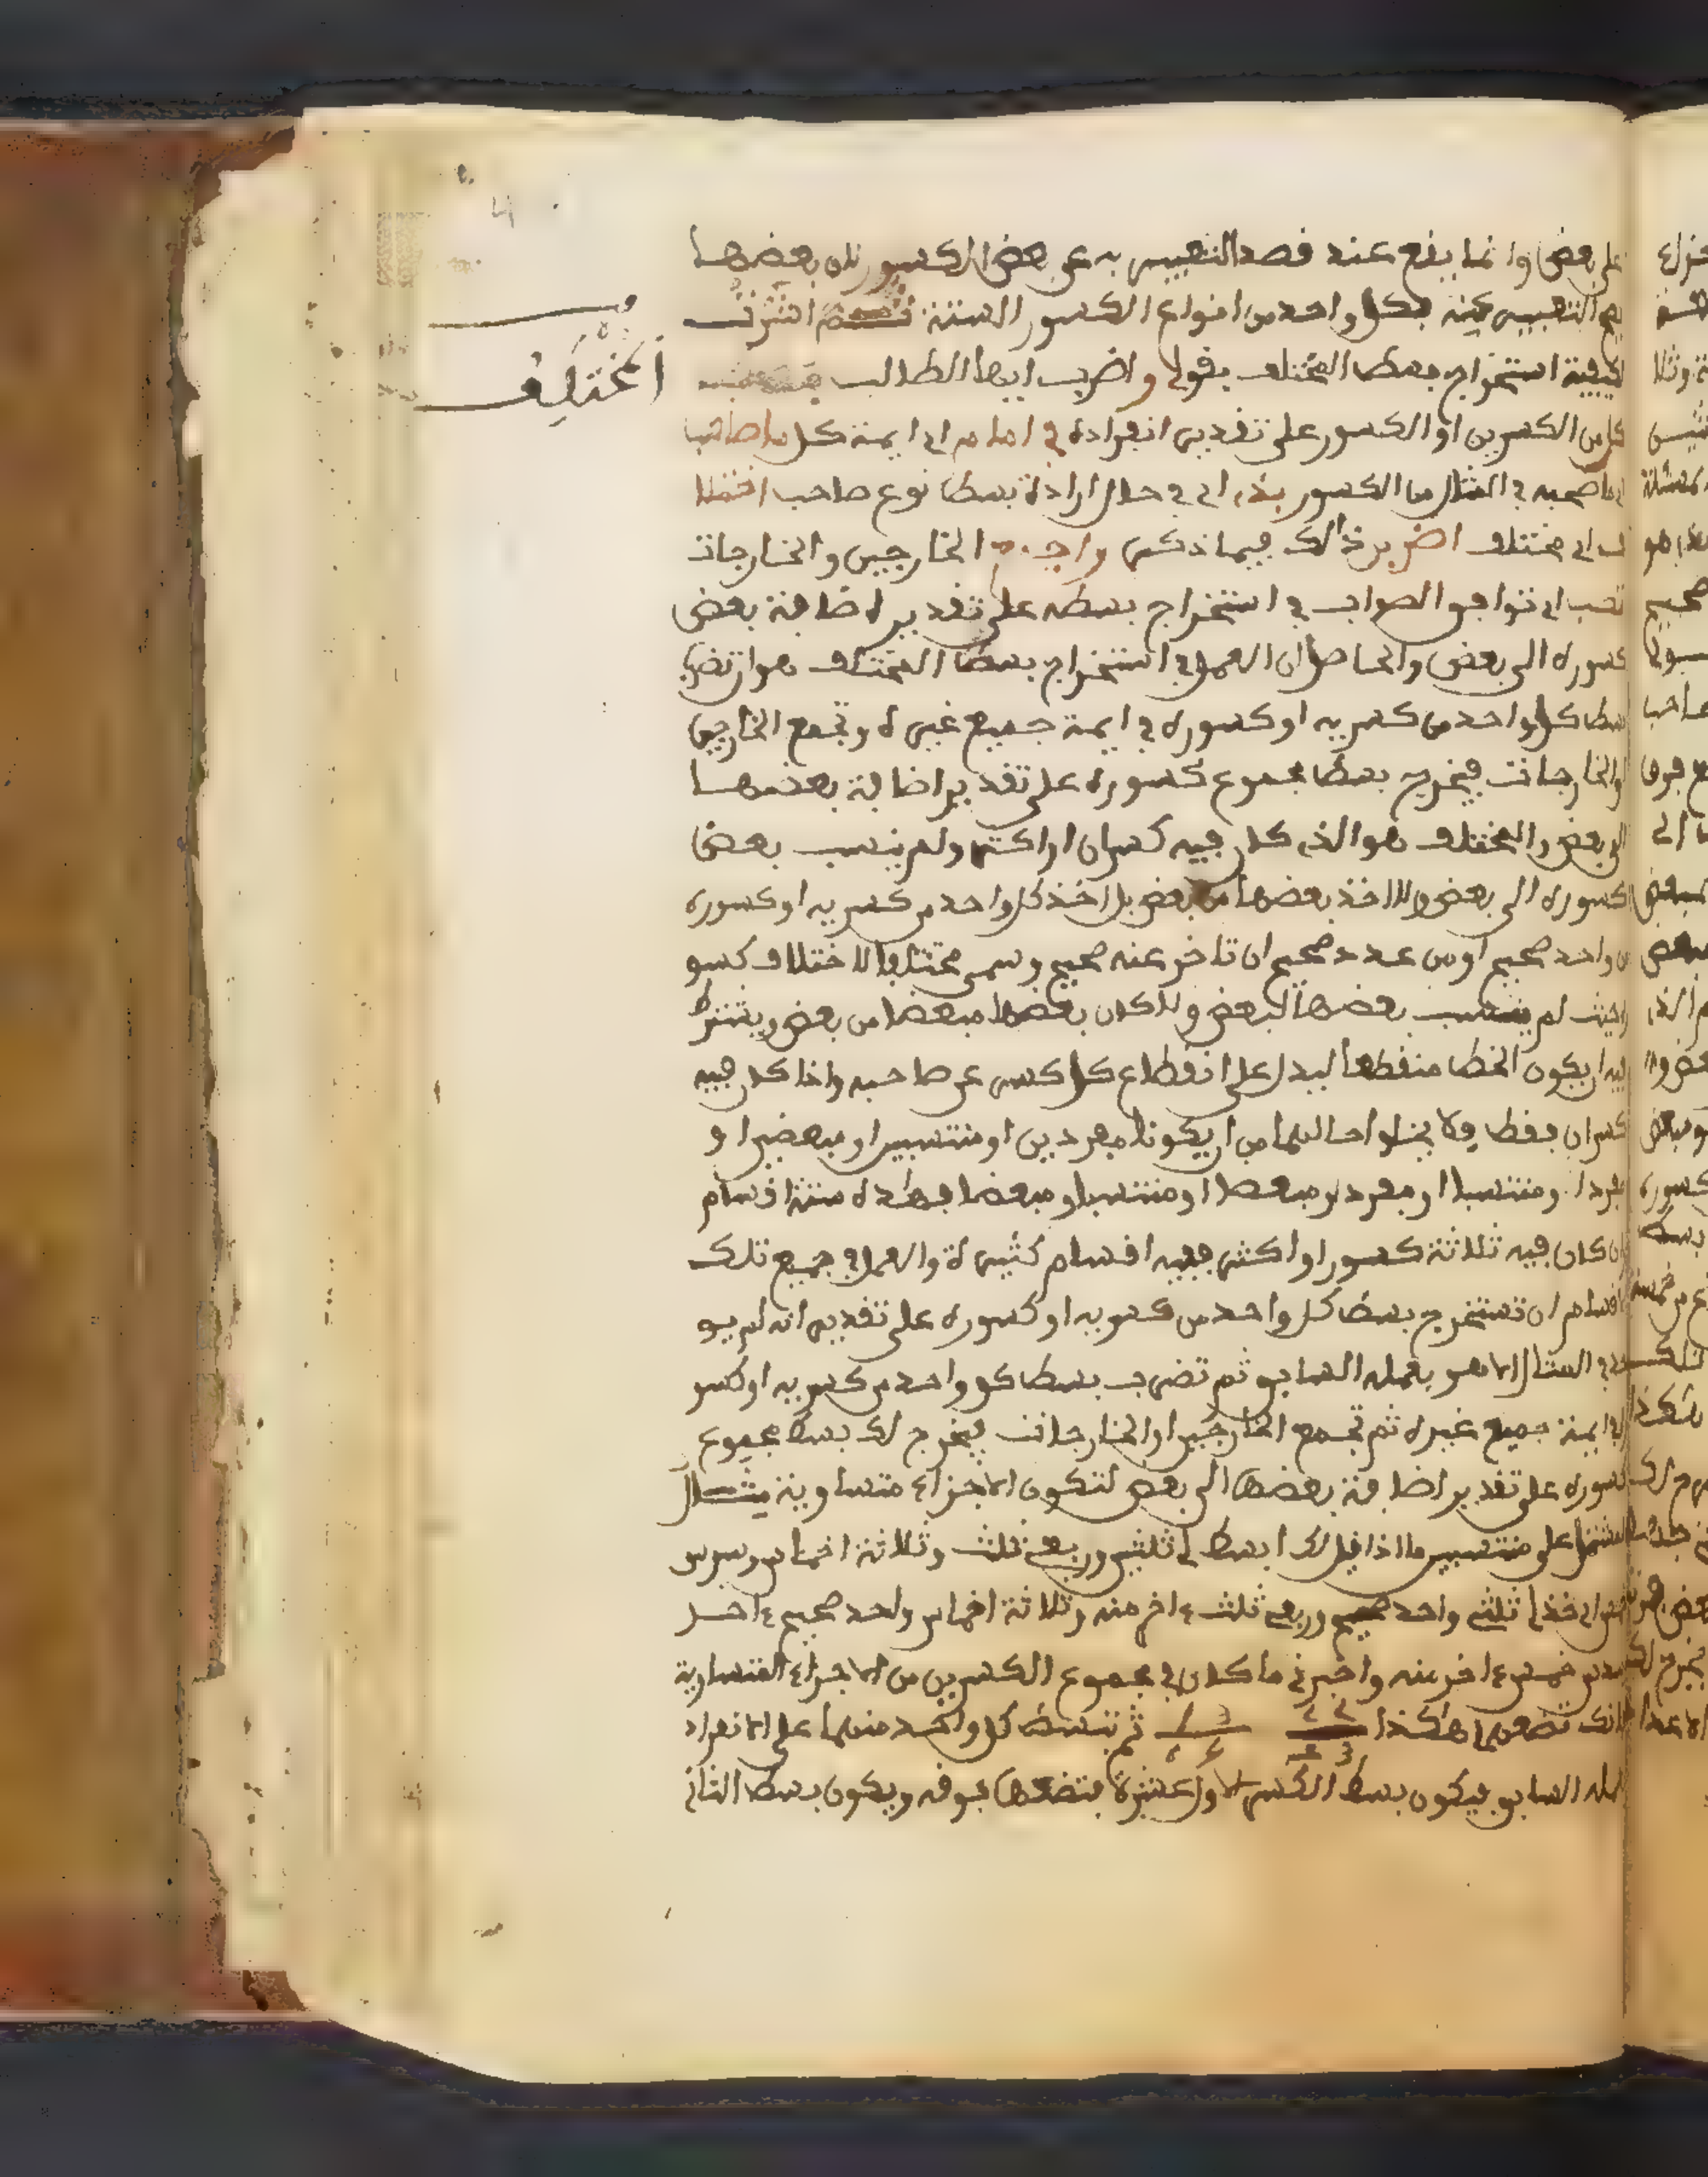 على بعض وانما يقع عند قصد التعبير به عن بعض الكسور لان بعضها
التعبير عنه بكل واحد من انواع الكسور الستة ثم اشرت
المختلف
لكيفية استخراج بسط المختلف بقولي واضرب ايها الطالب
كل من الكسرين او الكسور على تقدير انفراده في امام اي ايمة كل ما صاحب
اي ما صحبه في المثال من الكسور بذي اي في حال ارادة بسط نوع صاحب اختلا
ف اي مختلف اضرب ذالك فيما ذكر واجمع الخارجين والخارجات
تصب اي توافق الصواب في استخراج بسطه على تقدير اضافة بعض
كسوره الى بعض والحاصل ان العمل في استخراج بسط المختلف هو ان تضرب
بسط كل واحد من كسريه او كسوره في ايمة جميع غيره وتجمع الخارجين
او الخارجات فيخرج بسط مجموع كسوره على تقدير اضافة بعضها
الى بعض والمختلف هو الذي كان فيه كسران او اكثر ولم ينسب بعض
كسوره الى بعض ولا اخذ بعضها من بعض بل اخذ كل واحد من كسريه او كسوره
من واحد صحيح او من عدد صحيح ان تاخر عنه صحيح وسمي مختلفا لاختلاف كسو
ره حيث لم ينتسب بعضها لبعض ولا كان بعضها مبعضا من بعض ويشترط
فيه ان يكون الخط منقطعا ليدل على انقطاع كل كسر عن صاحبه واذا كان فيه
كسران فقط فلا يخلوا حالهما من ان يكونا مفردين او منتسبين او مبعضين او
مفردا ومنتسبا او مفردا ومبعضا او منتسبا ومبعضا فهذه ستة اقسام
وان كان فيه ثلاثة كسور او اكثر ففيه اقسام كثيرة والعمل في جميع تلك
الاقسام ان تستخرج بسط كل واحد من كسريه او كسوره على تقدير انه لم يو
جد في المثال الا هو بعمله السابق ثم تضرب بسط كل واحد من كسريه او كسو
ره في ايمة جميع غيره ثم تجمع الخارجين او الخارجات فيخرج لك بسط مجموع
كسوره على تقدير اضافة بعضها الى بعض لتكون الاجزاء متساوية مثال
المشتمل على منتسبين ما اذا قيل لك ابسط لي ثلثين وربعي ثلث وثلاثة اخماس وسدس
خمس اي خذ لي ثلثي واحد صحيح وربعي ثلث اخر منه وثلاثة اخماس واحد صحيح اخر
وسدس خمس اخر منه واخبرني ما كان في مجموع الكسرين من الاجزاء المتساوية
فانك تضعهما هكذا ثم تبسط كل واحد منهما على الانفراد
بعمله السابق فيكون بسط الكسر الاول عشرة فتضعها فوقه ويكون بسط الثاني